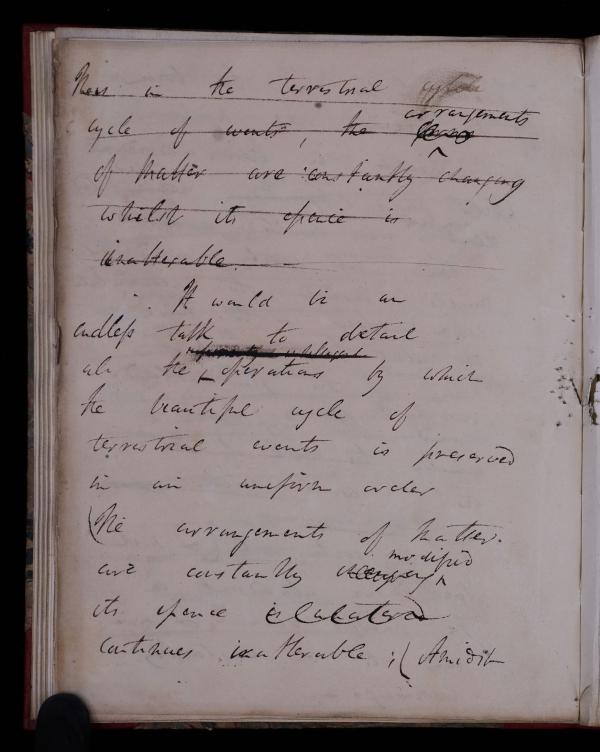 Thus in the terrestrial
arrangements
cycle of events, the
of matter are constantly changing
whilst its essence is
inalterable.
It would be an
endless task to detail
all the operations by which
the beautiful cycle of
terrestrial events is preserved
in an uniform order
(The arrangements of matter
modified
are constantly
its essence
continues inalterable ; ( Amidst